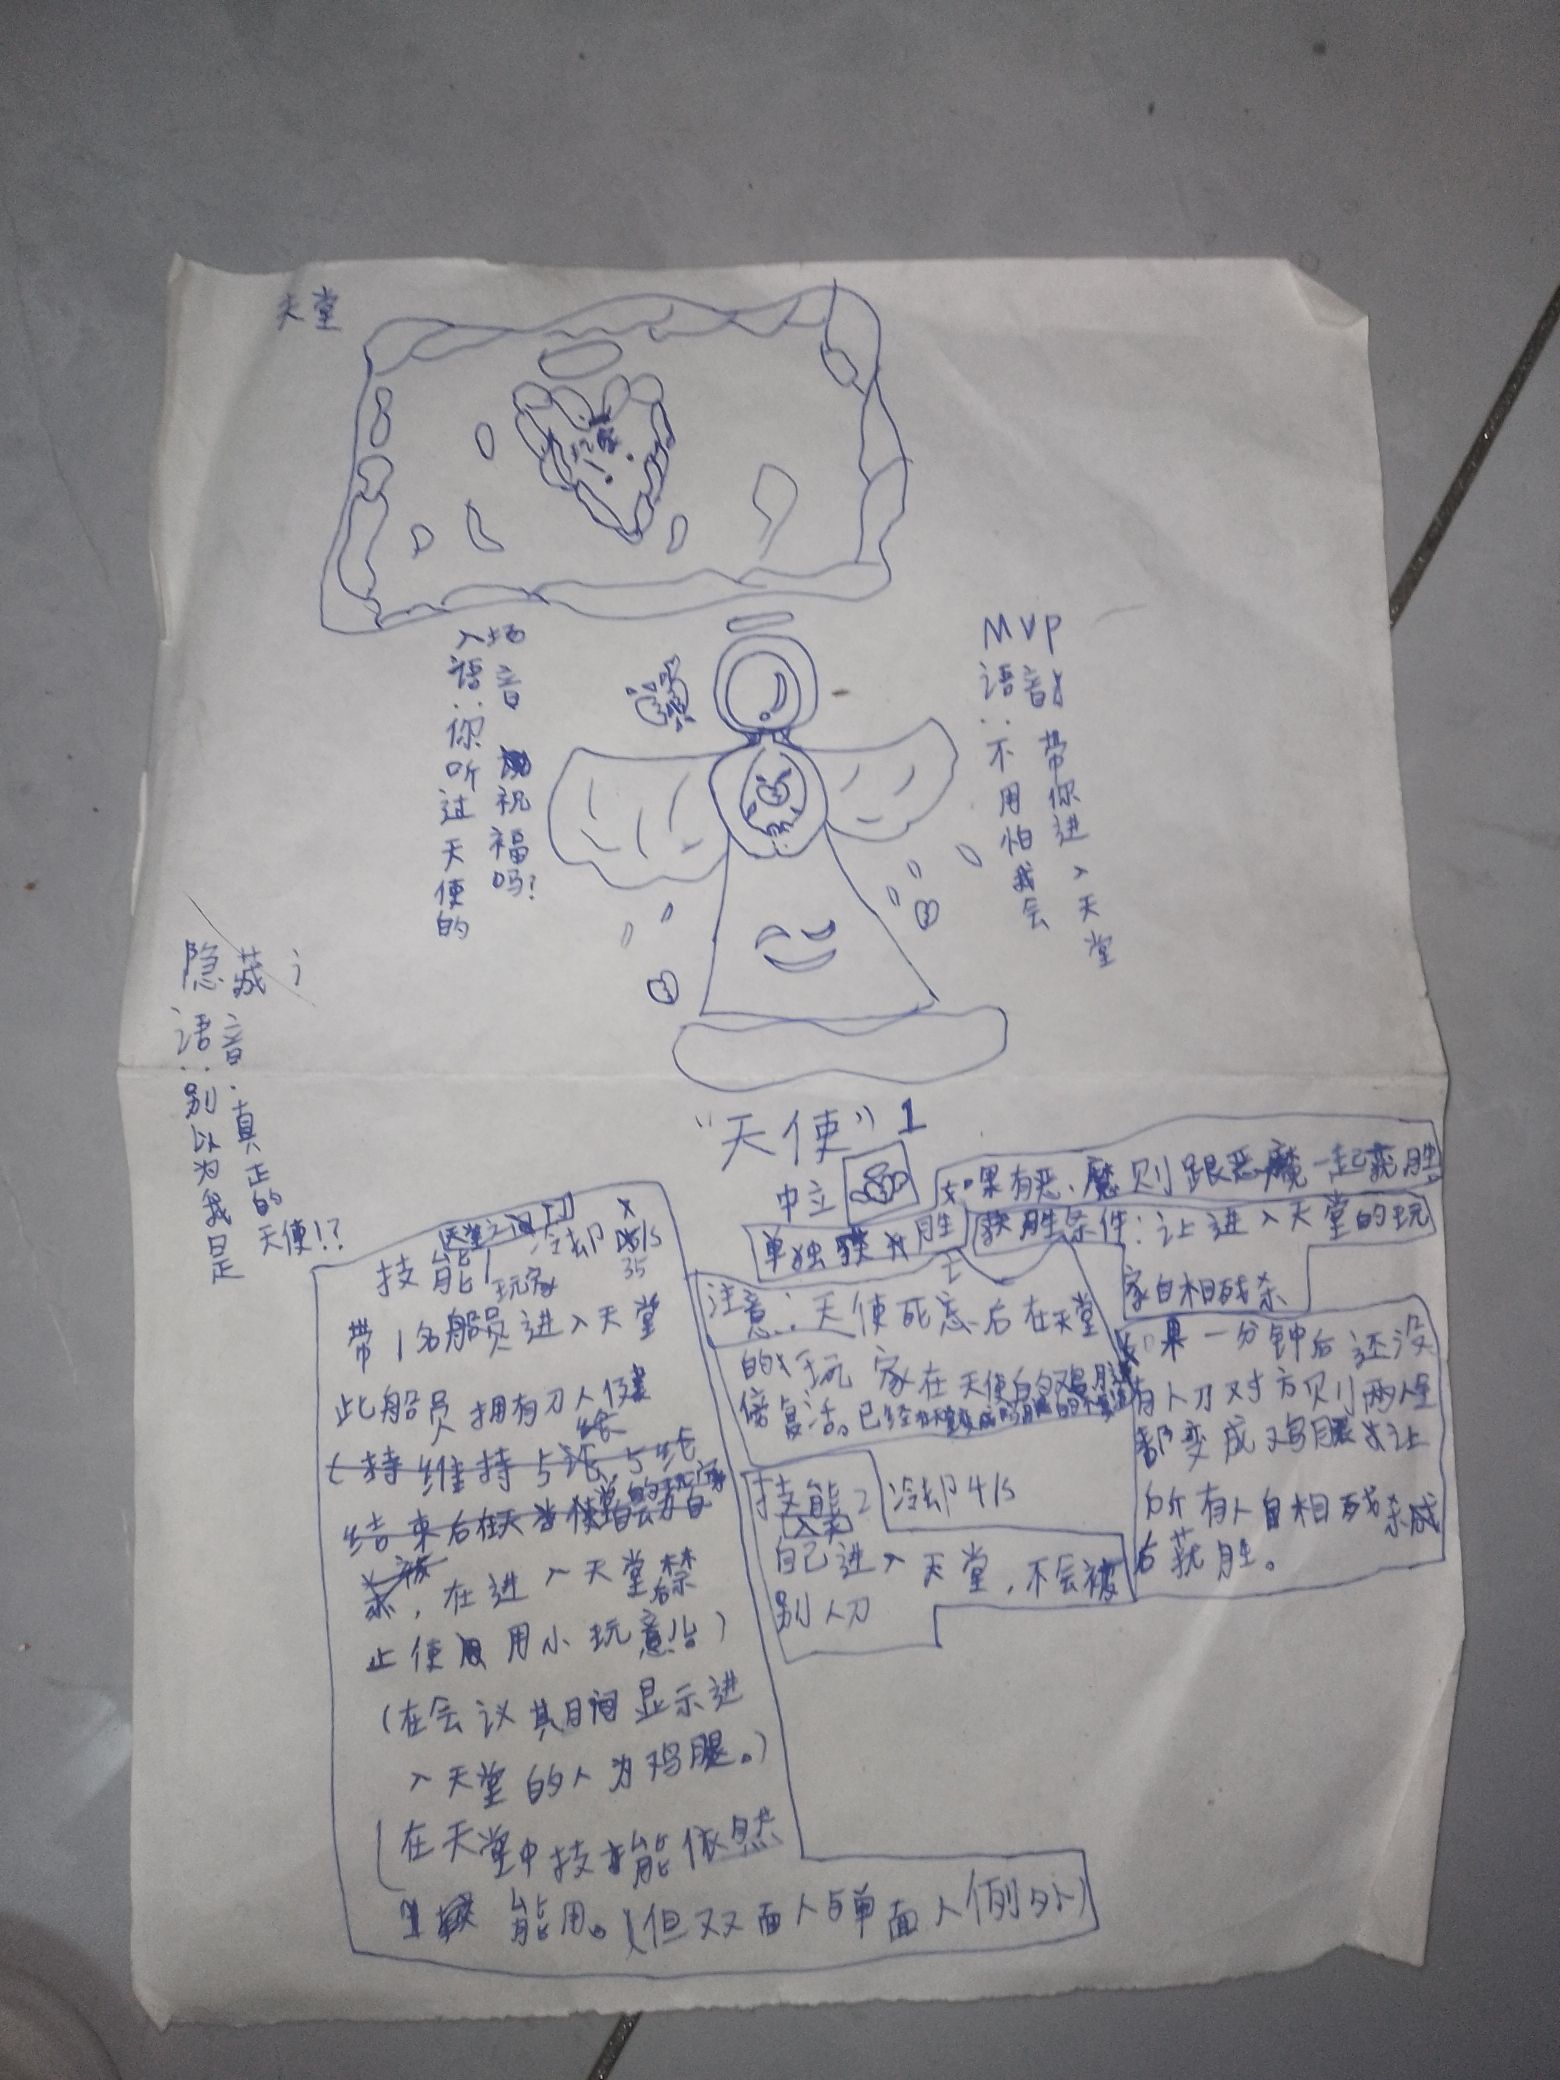 天堂
入场语音：你听过天使的祝福吗？
MVP
语音：不用怕我会带你进入天堂
隐藏
语音：别以为我是真正的天使！？
“天使”1
中立
如果有恶魔则跟恶魔一起获胜
单独获胜
获胜条件：让进入天堂的玩
家自相残杀
如果一分钟后还没
有人刀对方则两人
都变成鸡腿 让
所有人自相残杀成
右获胜。
注意：天使死忘后在天堂
的 玩家在天使的鸡腿
傍复活。已经
技能1 冷却 35
玩家
带1名船员进入天堂
此船员拥有刀人
在进入天堂后禁
止使用小玩意台）
（在会议其日间显示进
入天堂的人为鸡腿。）
（在天堂中技能依然
能用。（但双面人与单面人例外）
技能2 冷却4/s
自己进入天堂，不会被
别人刀